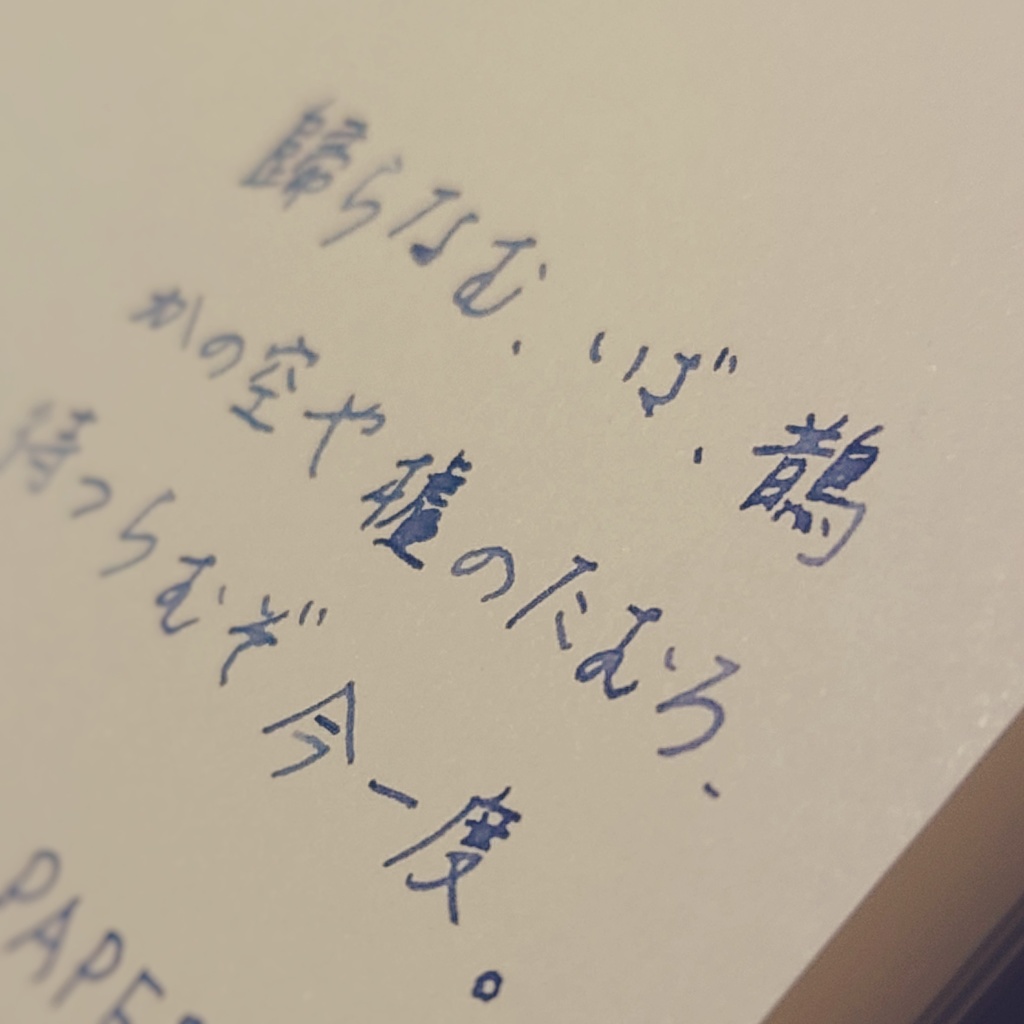 歸らなむ、いざ、鵲
かの空や櫨のたむろ、
待つらむぞ今一度。
PAPER